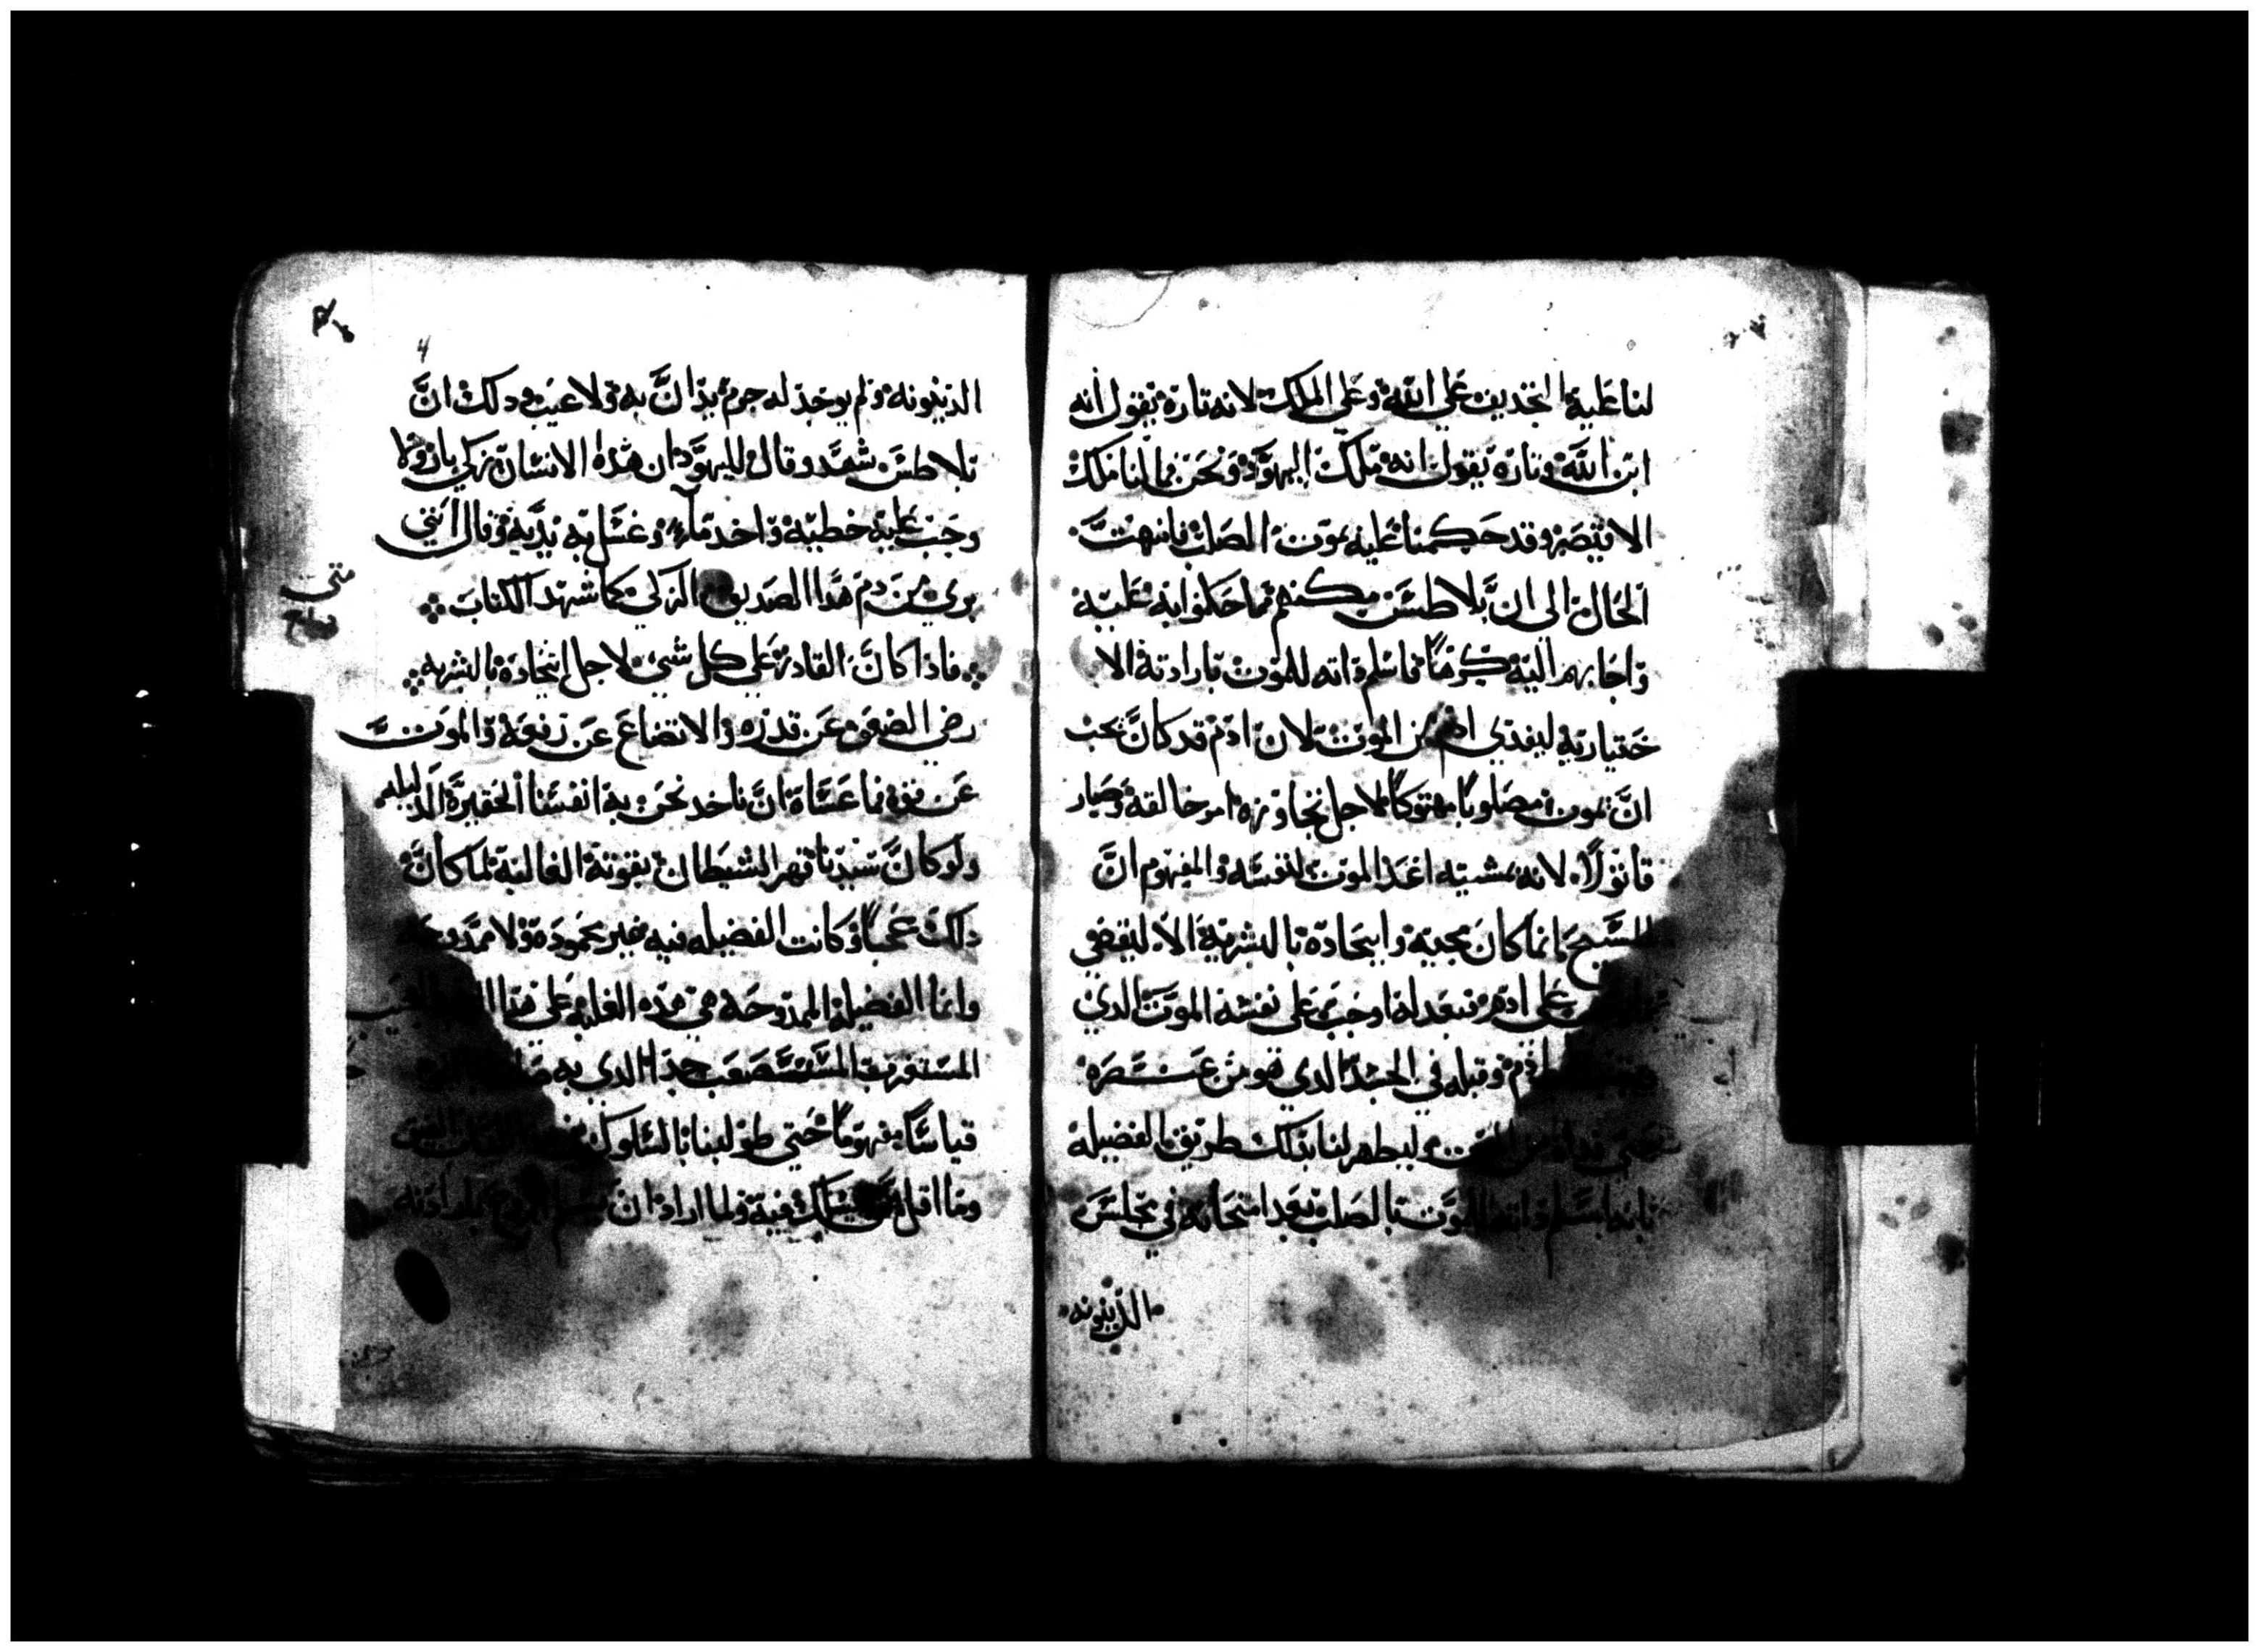 لنا عليه التجديف علي الله وعلي الملك لانه تارة يقول انه
ابن الله وتاره يقول انه ملك اليهود ونحن فما لنا ملك
الا قيصر وقد حكمنا عليه بموت الصلب فانتهت
الحال الى ان بلاطس مكنهم مما حكموا به عليه
واجابهم اليه كرهًا فاسلم داته للموت بارادته الا
ختياريه ليفدي ادم من الموت لان ادم قد كان يجب
ان يموت مصلوبًا مهتوكًا لاجل تجاوزه امر خالقه وصار
قاتولًا لانه بمشيته اعد الموت لنفسه والمفهوم ان
المسيح انما كان مجيه وايتحاده بالبشرية الا ليقضي
علي ادم فبعدله اوجب علي نفسه الموت الدي
ادم وقبله في الجسد الدي هو من عنصره
وليظهر لنا بدلك طريق الفضيله
بانه اسلم داته للموت بالصلب بعد امتحانه في مجلس
الدينونه
الدينونه ولم يوجد له جرم يدان به ولا عيب ودلك ان
بلاطس شهد وقال لليهود ان هذه الانسان زكي بار ولا
وجب عليه خطيه واخد ماء وغسل به يديه وقال انني
بري من دم هدا الصديق الزكي كما شهد الكتاب
فاذا كان القادر علي كل شي لاجل اتحاده بالبشريه
رضي الضعف عن قدره والاتضاع عن رفعه والموت
عن قوه فما عساه ان ناخد نحن به انفسنا الحقيره الدليله
ولو كان سيدنا قهر الشيطان بقوته الغالبة لما كان
دلك عجبًا وكانت الفضيله فيه غير محموده ولا ممدوحه
وانما الفضيله الممدوحه هي هده الغلبه علي هدا
المستغرب المستصعب جدا الدي به
قياسًا مفهومًا حتي طولبنا بالسلوك
وما اقل من يسلك فيه ولما اراد ان بارادته
متى